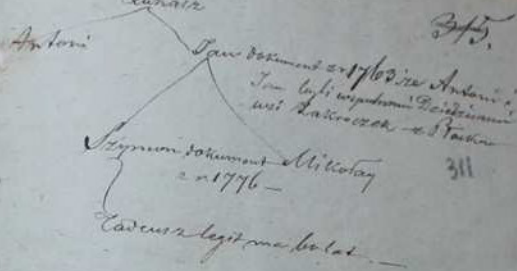 Łukasz
3/5.
Antoni
Jan dokument z r 1763 że Antoni i
Jan byli współwni Dziedzicami
wsi Zakroczek z Płocku
Szymon dokument Mikołay
z r 1776 —
311
Tadeusz legit ma bulat. —